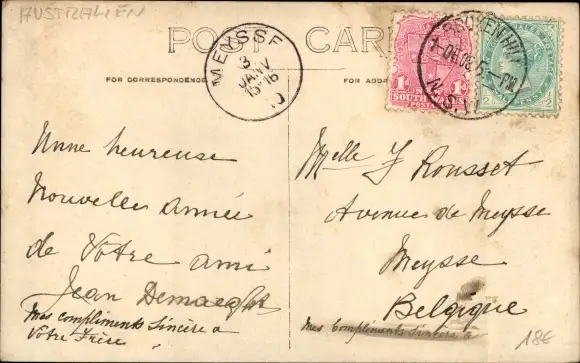 AUSTRALIEN
POST CARD
FOR CORRESPONDENCE
FOR ADD
MEYSSE
3
JANV
15-16
BROKEN HILL
N.S.W
1d
SOUTH
POSTAGE
WALES
2
Unne heureuse
Nouvelle année
de Votre ami
Jean
Mes compliments Sincère a
Votre Frise
Melle J Rousset
Avenue de Meysse
Meysse
Belgique
mes Compliments Sincère a
18€